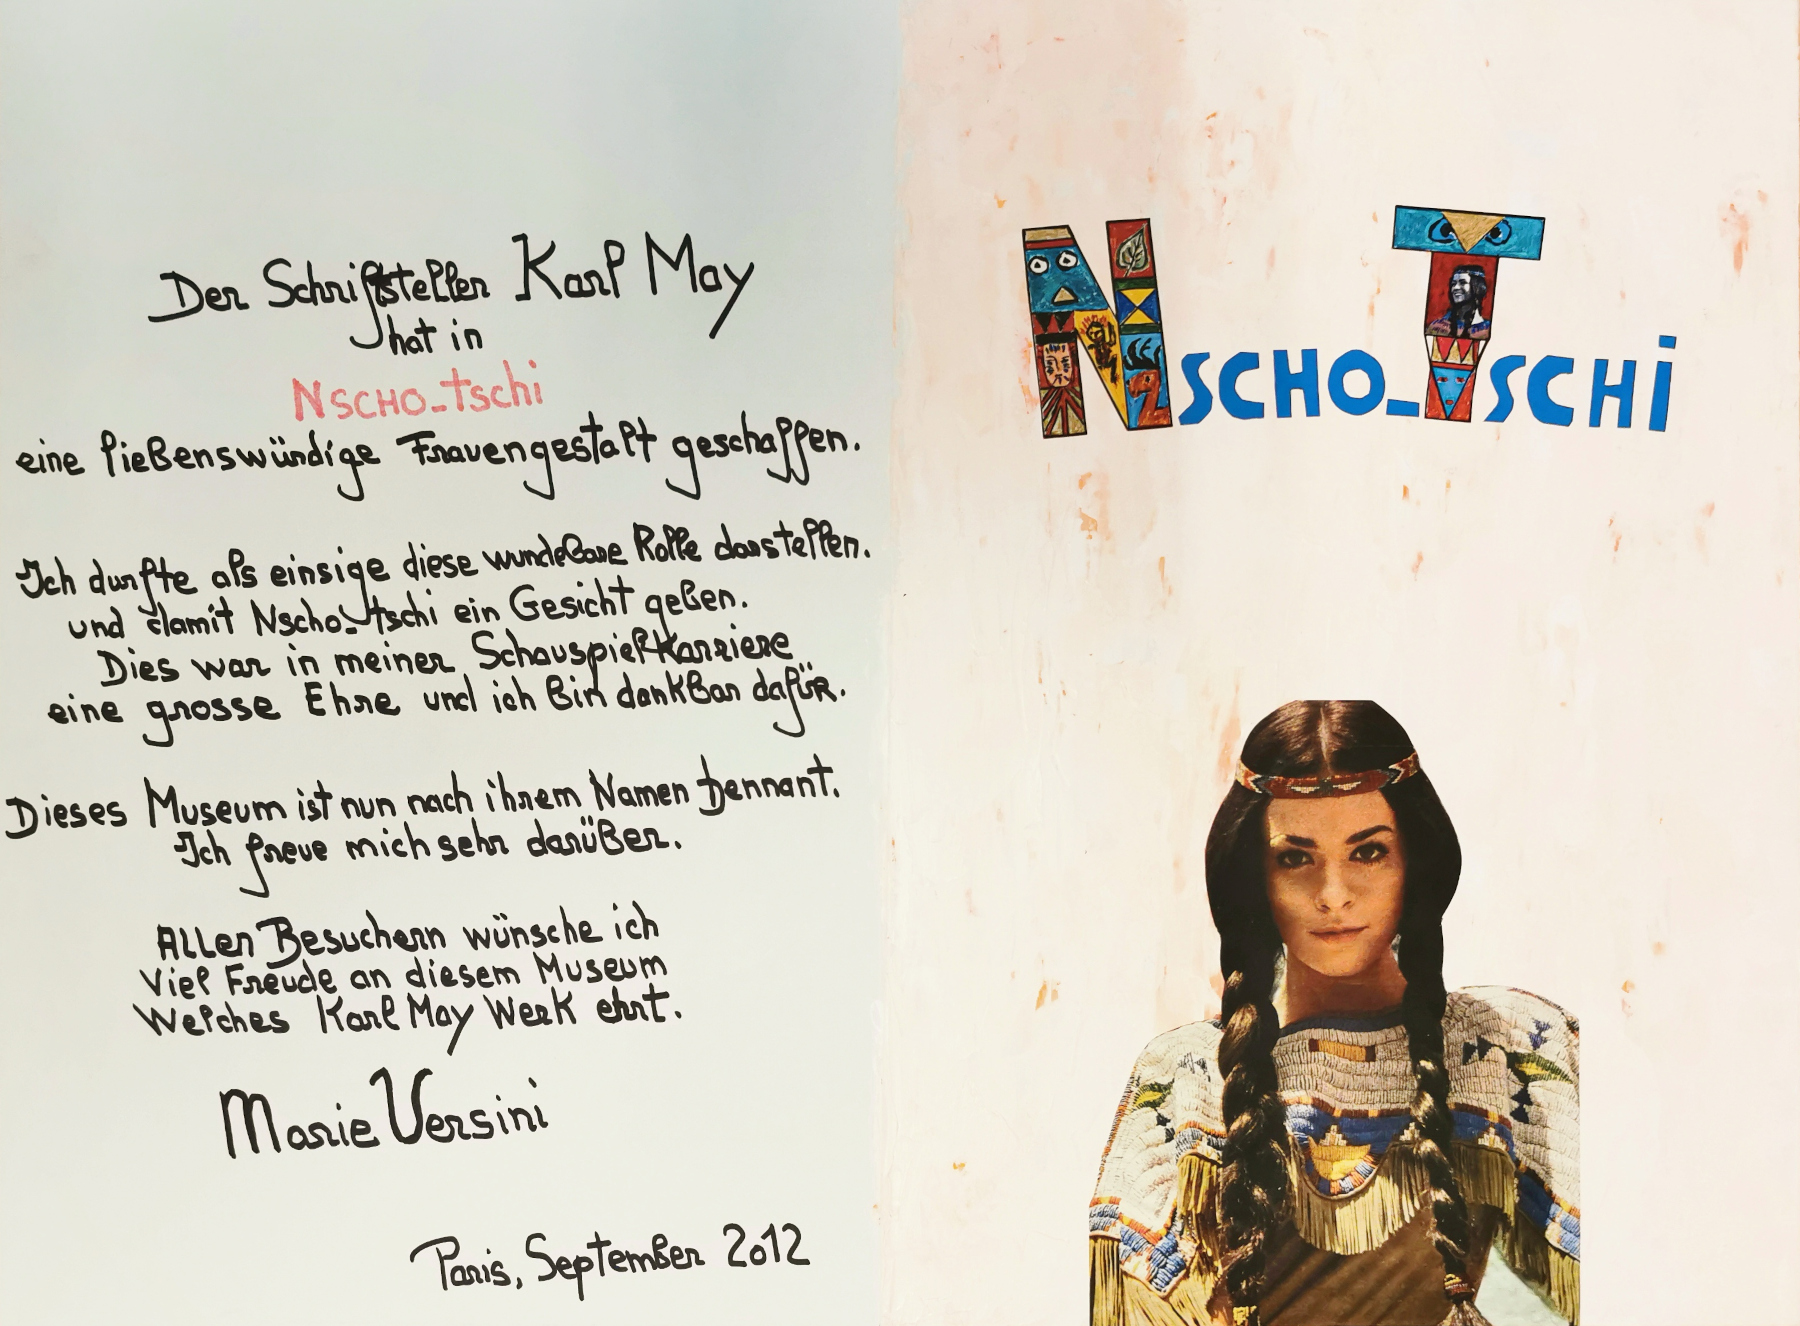 Der Schriftsteller Karl May
hat in
Nscho-tschi
eine liebenswürdige Frauengestalt geschaffen.
Ich durfte als einsige diese wundebare Rolle darstellen.
und damit Nscho-tschi ein Gesicht geben.
Dies war in meiner Schauspiel-Karriere
eine grosse Ehre und ich bin dankbar dafür.
Dieses Museum ist nun nach ihrem Namen bennant.
Ich freue mich sehr darüber.
Allen Besuchern wünsche ich
Viel Freude an diesem Museum
Welches Karl May Werk ehrt.
Marie Versini
Paris, September 2012
NSCHO-TSCHi